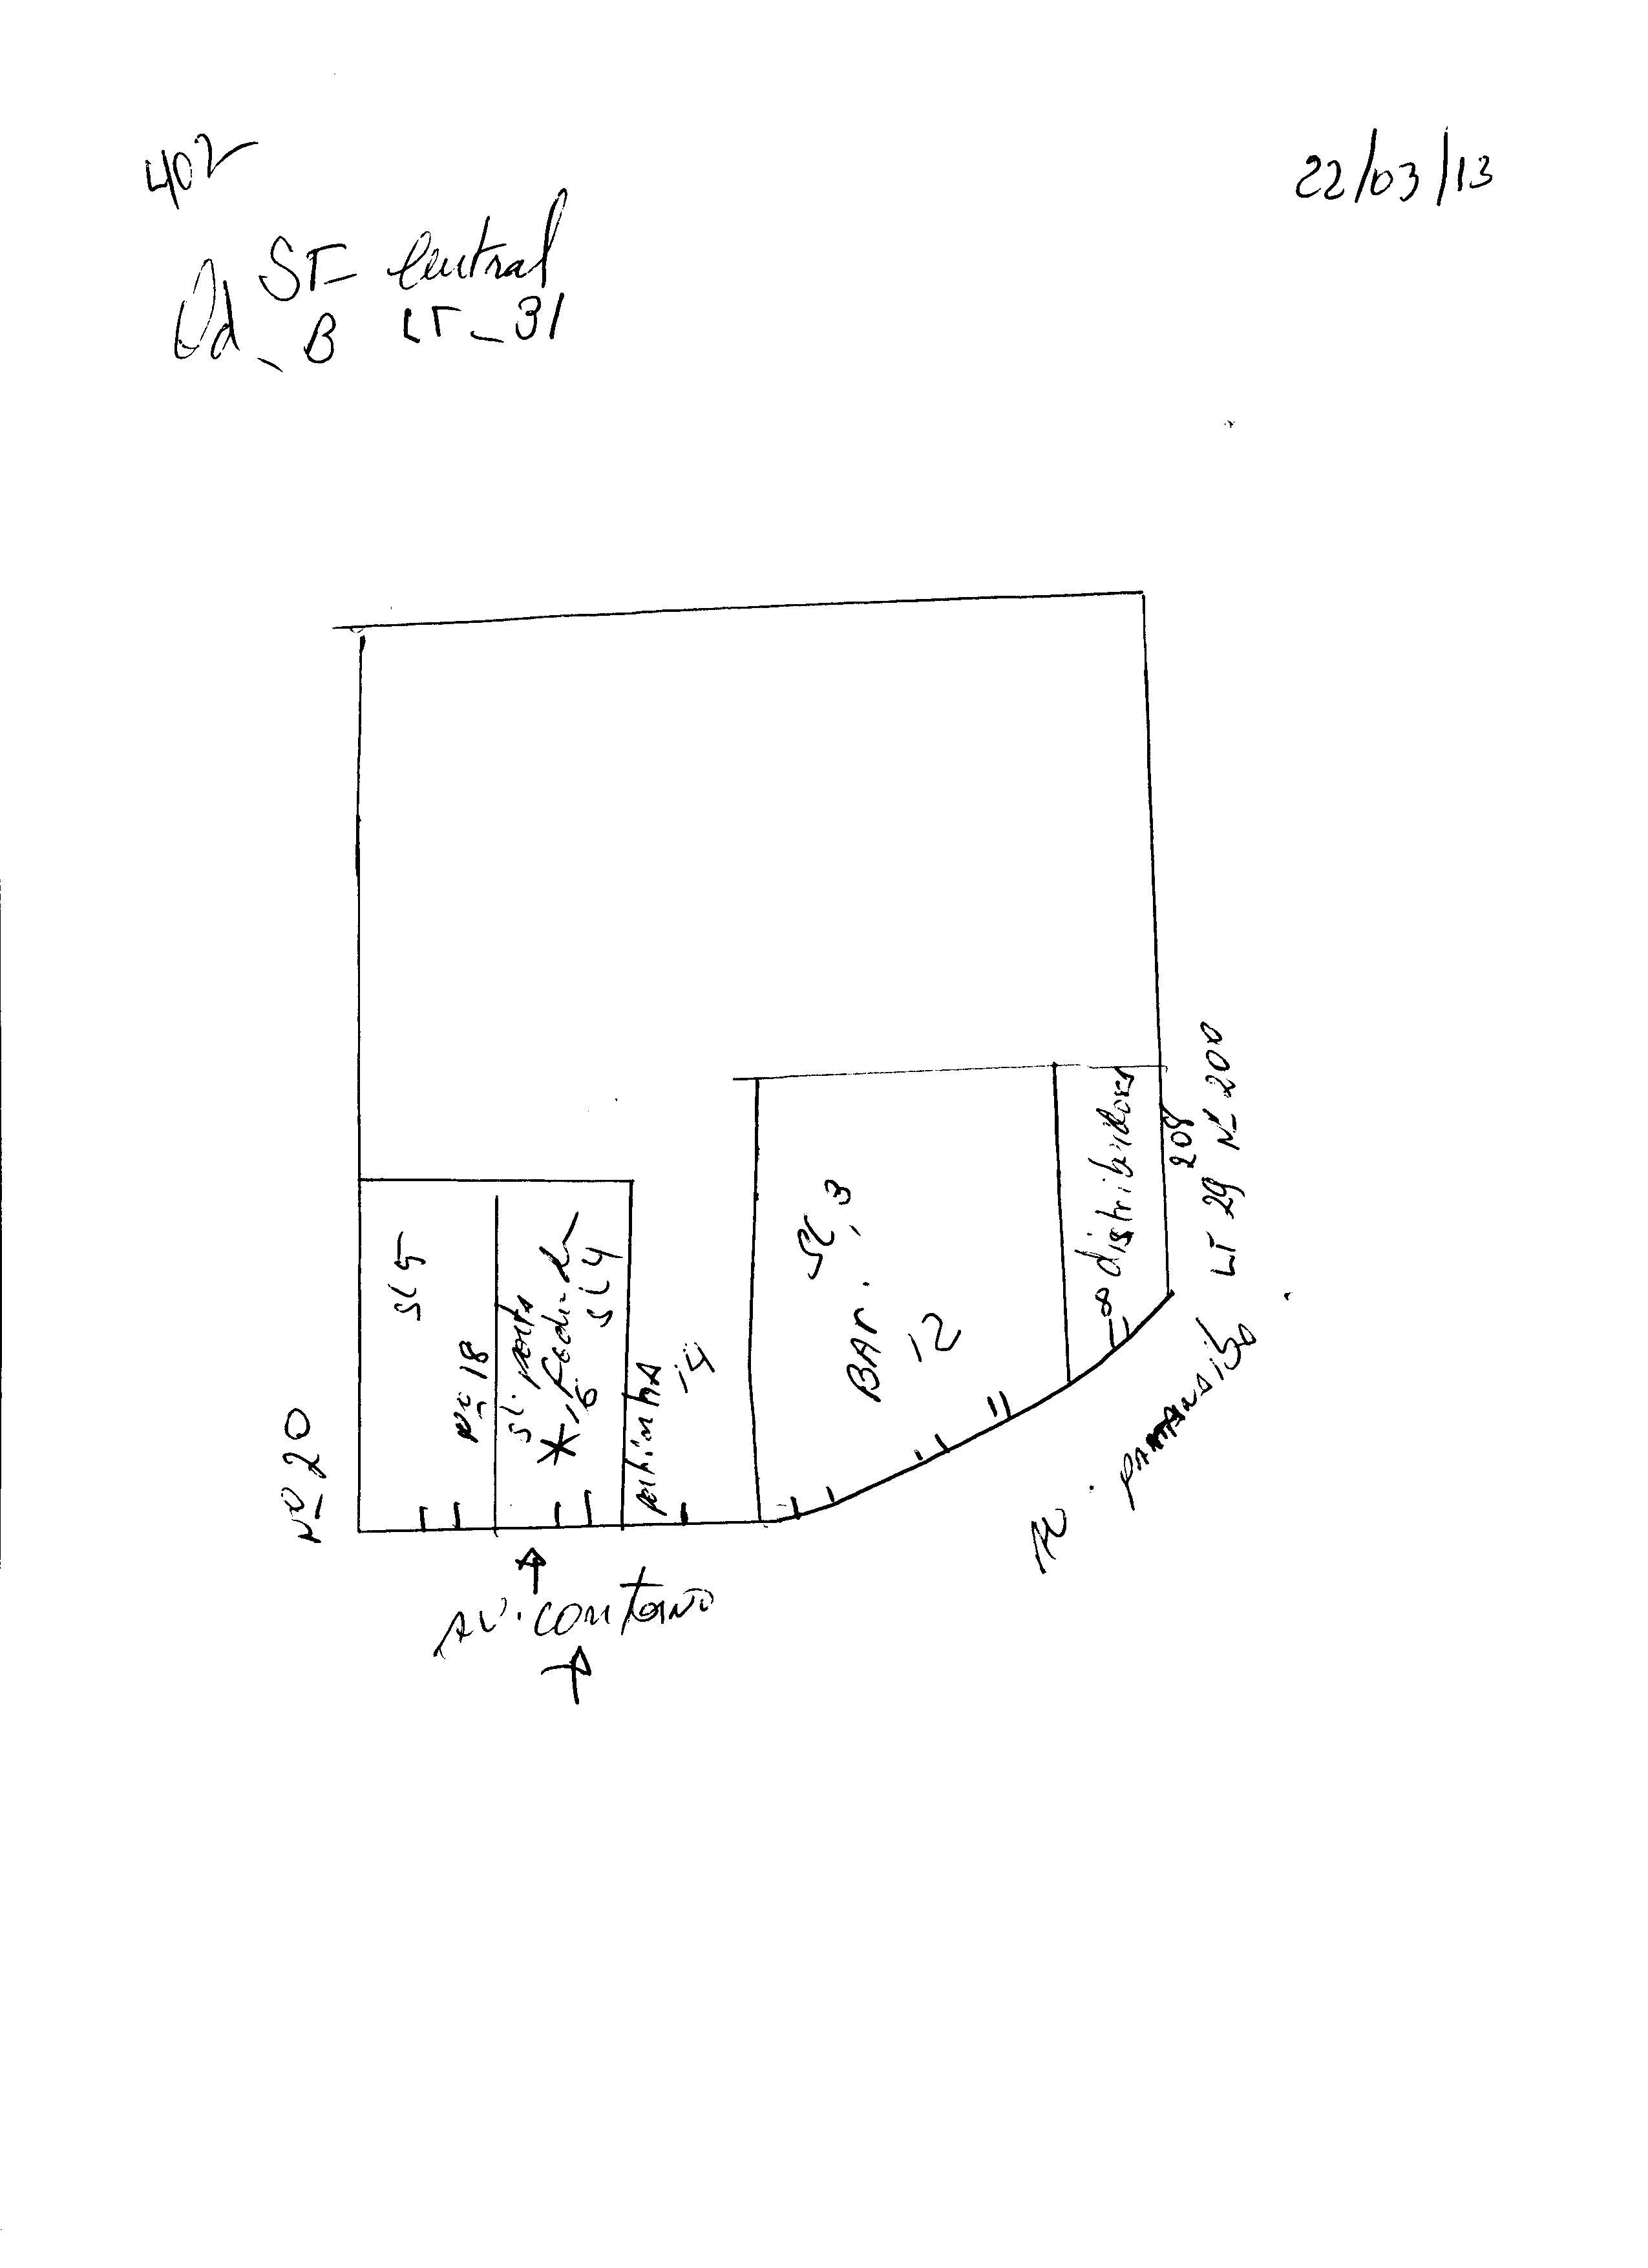 402
22/03/13
ST- Central
Qd - B LT - 31
SL 5
Nº 18
SL. porta
16
SL 4
portinha
14
SL. 3
BAR.
12
8
distribuidora
208
LT 29 Nº 200
Nº 20
AV. contorno
AV.